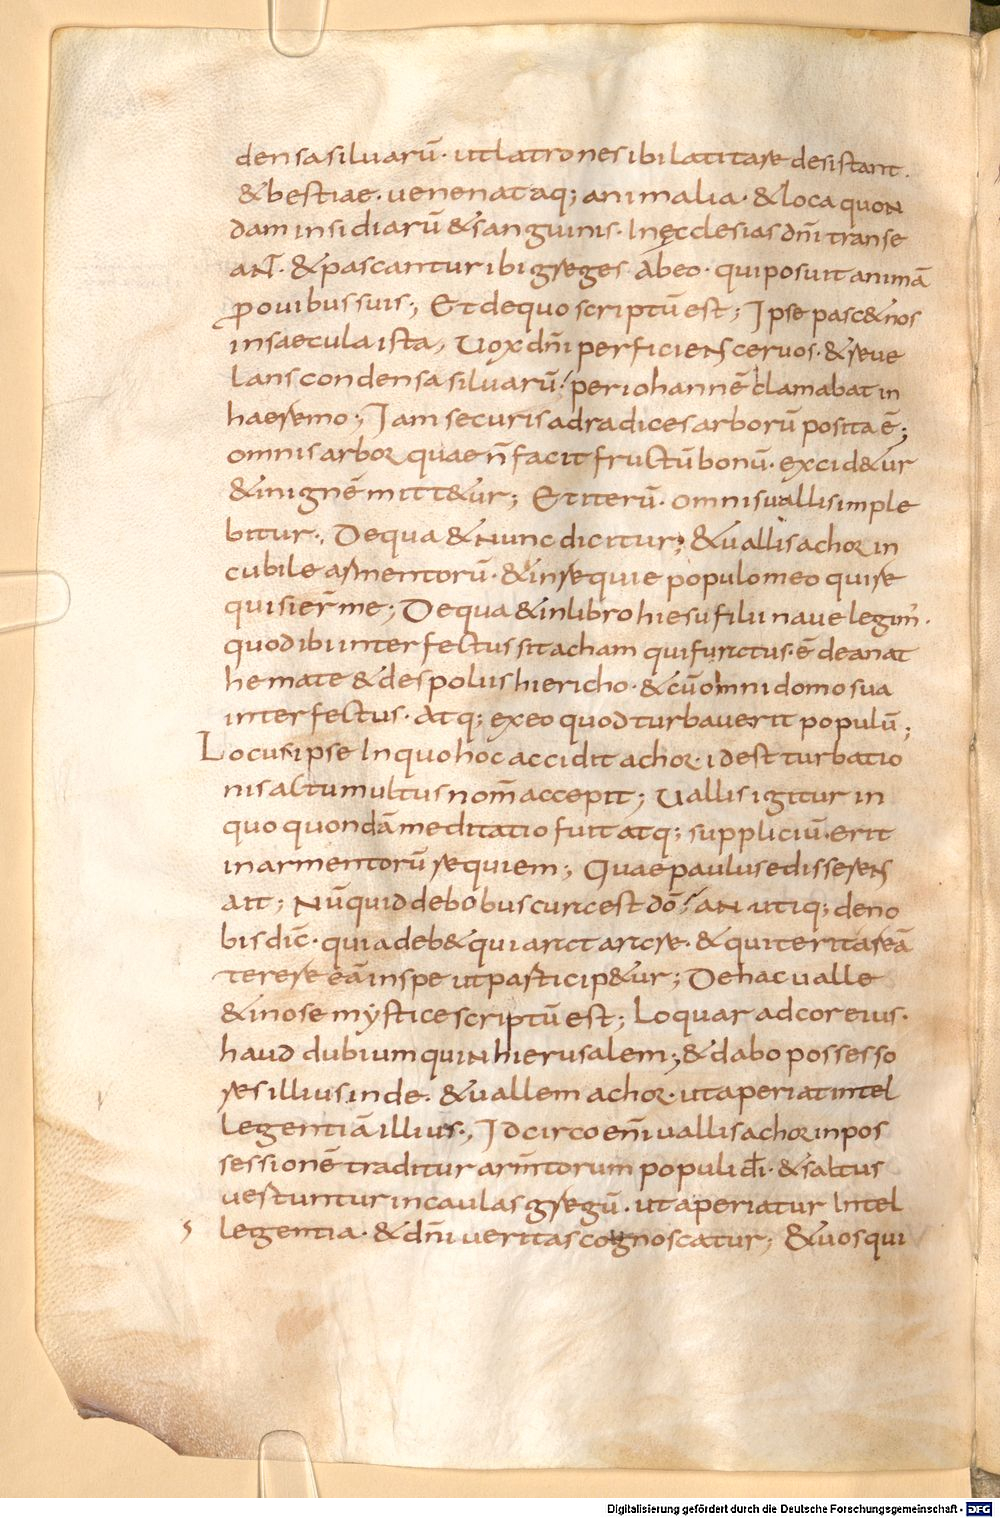 densa siluarū· ut latrones ibi latitare desistant·
& bestiae· uenenataq; animalia· & loca quon
dam insidiarū & sanguinis· In ęcclesias dn̄i transe
ant· & pascantur ibi greges Abeo· qui posuit animā
ꝓ ouibus suis; Et de quo scriptū est; Ipse pasc& nos
in saecula ista, Uox dn̄i perficiens ceruos· & reue
lans condensa siluarū· per iohannē clamabat in
haeremo; Iam securis ad radices arborū posita ē;
omnis arbor quae n̄ facit fructū bonū· excid&ur
& in ignē mitt&ur; Et iterū· omnis uallis imple
bitur·, De qua & nunc dicitur; & uallis achor in
cubile armentorū· & in requie populo meo qui re
quisier̄ me; De qua & in libro hiesu filii naue legim̄·
quod ibi interfectus sit acham qui furatus· ē de anat
hemate & de spoliis hiericho· & cū omni domo sua
interfectus· atq; ex eo quod turbauerit populū;
Locus ipse In quo hoc accidit achor· id est turbatio
nis al tumultus nom̄ accepit; Uallis igitur in
quo quondā meditatio fuit atq; suppliciū· erit
in armentorū requiem; Quae paulus edisserens
ait; Nūquid de bobus cura est dō; an utiq; de no
bis dic̄· quia deb& qui arat arare· & qui terit areā
terere eā in spe ut particip&ur; De hac ualle
& in ose mystice scriptū est; Loquar ad cor eius·
haud dubium quin hierusalem; & dabo possesso
res illius inde· & uallem achor· ut aperiat intel
legentiā illius·, Idcirco en̄i uallis achor in pos
sessionē traditur arm̄torum populi dī· & saltus
uertuntur in caulas gregū· ut aperiatur Intel
legentia· & dn̄i ueritas cognoscatur; & uos qui